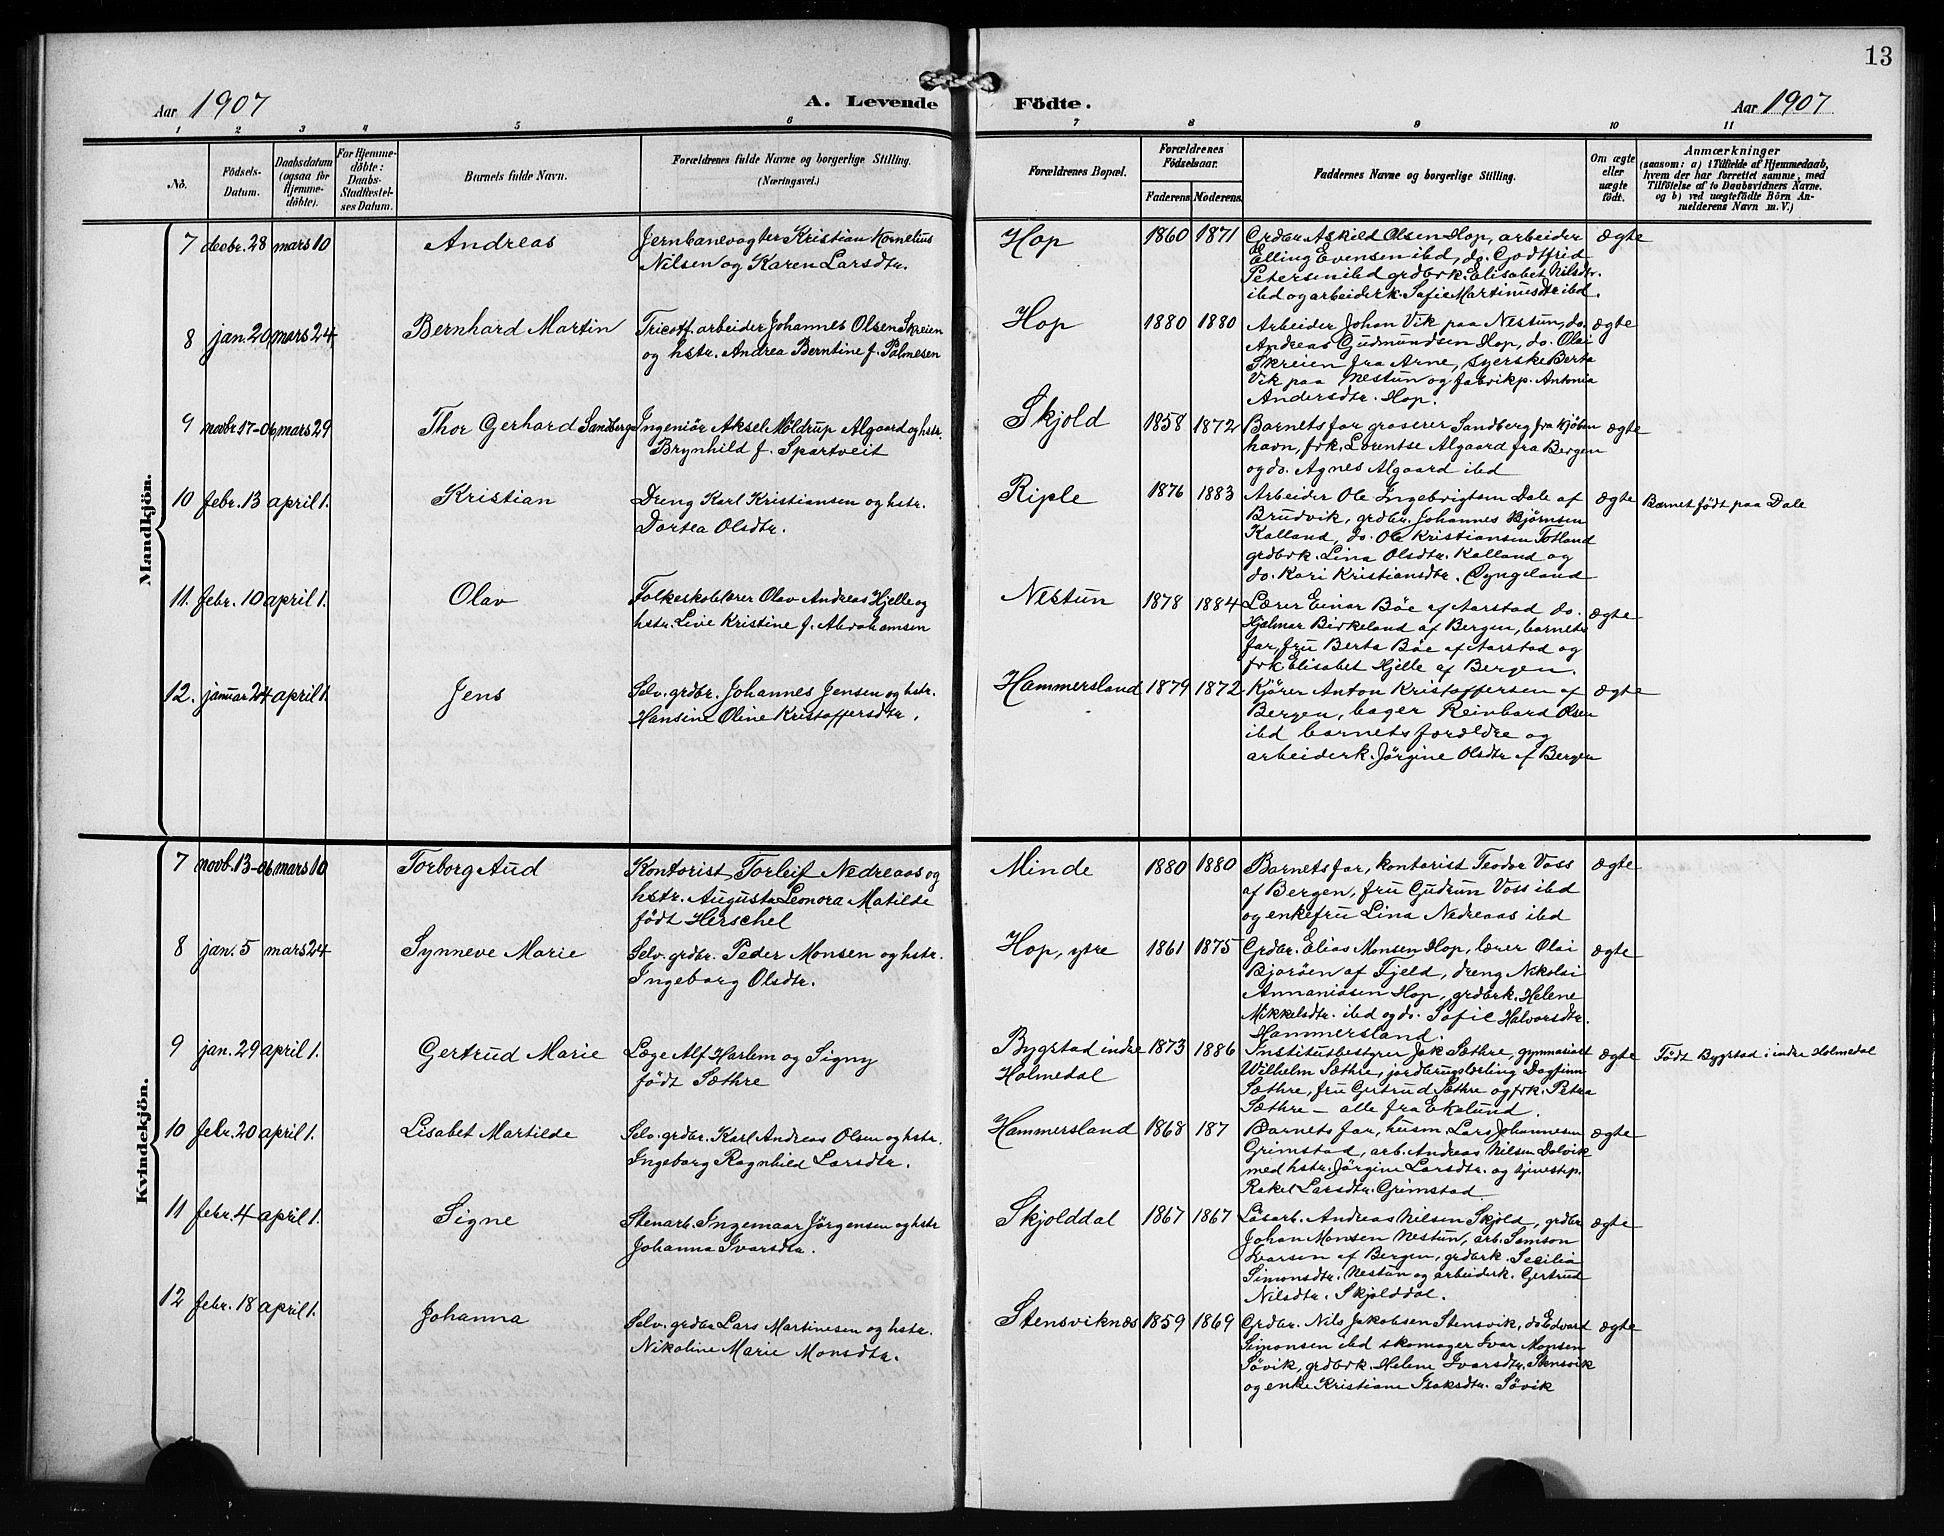 13
Aar 1907
A. Levende Födte.
Aar 1907
1 2 3 4 5 6 7 8 9 10 11
No.
Födsels-Datum.
Daabsdatum
(ogsaa for
Hjemme-
döbte).
For Hjemme-
döbte:
Daabs-
Stadfæstel-
ses Datum.
Barnets fulde Navn.
Forældrenes fulde Navne og borgerlige Stilling.
(Næringsvei.)
Forældrenes Bopæl.
Forældrenes
Födselsaar.
Faderens Moderens.
Faddernes Navne og borgerlige Stilling.
Om ægte
eller
uægte
födt.
Anmærkninger
(saasom: a) i Tilfælde af Hjemmedaab,
hvem der har forrettet samme, med
Tilföielse af to Daabsvidners Navne.
og b) ved uægtefödte Börn An-
melderens Navn m. V.)
Mandkjön.
7 decbr. 28 mars 10 Andreas
Jernbanevogter Kristian Kornelius
Nilsen og Karen Larsdtr.
Hop 1860 1871
Grdbr. Askild Olsen Hop, arbeider
Elling Evensen ibd, do. Godtfrid
Petersen ibd grdbrk. Elisabet Nilsdtr.
ibd og arbeiderk. Sofie Martinusdtr ibd.
ægte
8 jan. 20 mars 24 Bernhard Martin
Tricotf. arbeider Johannes Olsen Skreien
og hstr. Andrea Berntine f. Palmesen
Hop 1880 1880
Arbeider Johan Vik paa Nestun, do.
Andreas Gudmundsen Hop, do. Olai
Skreien fra Arne, syerske Berta
Vik paa Nestun og fabrikp. Antonia
Andersdtr. Hop.
ægte
9 novbr. 17-06 mars 29 Thor Gerhard Sandberg
Ingeniör Aksel Möldrup Algaard og hstr.
Brynhild f. Spartveit
Skjold 1858 1872
Barnets far groserer Sandberg fra Kjöben
havn, frk. Lorentse Algaard fra Bergen
og do. Agnes Algaard ibd
ægte
10 febr. 13 april 1. Kristian
Dreng Karl Kristiansen og hstr.
Dortea Olsdtr.
Riple 1876 1883
Arbeider Ole Ingebrigtsen Dale af
Brudvik, grdbr. Johannes Bjørnsen
Kalland, do. Ole Kristiansen Totland
grdbrk. Lina Olsdtr. Kalland og
do. Kari Kristiansdtr. Syngeland
ægte
Barnet födt paa Dale
11. febr. 10 april 1. Olav
Folkeskolelærer Olav Andreas Hjelle og
hstr. Live Kristine f. Abrahamsen
Nestun 1878 1884
Lærer Einar Böe af Aarstad do.
Hjalmar Birkeland af Bergen, barnets
far, fru Berta Böe af Aarstad og
frk Elisabet Hjelle af Bergen.
ægte
12. januar 24 april 1. Jens
Selv. grdbr. Johannes Jensen og hstr.
Hansine Oline Kristoffersdtr.
Hammersland 1879 1872
Kjörer Anton Kristoffersen af
Bergen, bager Reinhard Olsen
ibd barnets forældre og
arbeiderk. Jörgine Olsdtr af Bergen
ægte
Kvindekjön.
7 novb. 13-06 mars 10 Torborg Aud
Kontorist Torleif Nedreaas og
hstr. Augusta Leonora Matilde
födt Herschel
Minde 1880 1880
Barnets far, kontorist Teodor Voss
af Bergen, fru Gudrun Voss ibd
og enkefru Lina Nedreaas ibd
ægte
8 jan. 5 mars 24 Synneve Marie
Selv. grdbr. Peder Monsen og hstr.
Ingeborg Olsdtr.
Hop, ytre 1861 1875
Grdbr. Elias Monsen Hop, lærer Olai
Bjoröen af Fjeld, dreng Nikolai
Annaniasen Hop, grdbrk. Helene
Mikkelsdtr. ibd og do. Sofie Halvorsdtr.
Hammersland.
ægte
9 jan. 29 april 1. Gertrud Marie
Læge Alf Harlem og Signy
födt Sæthre
Bygstad indre
Holmedal
1873 1886
Institutbestyrer Jak Sæthre, gymnasiast
Wilhelm Sæthre, jordbrugslærling Dagfinn
Sæthre, fru Gertrud Sæthre og frk. Petra
Sæthre - alle fra Ekelund.
ægte
Födt Bygstad i indre Holmedal
10 febr. 20 april 1. Lisabet Martilde
Selv. grdbr. Karl Andreas Olsen og hstr.
Ingeborg Ragnhild Larsdtr.
Hammersland 1868 187
Barnets far, husm. Lars Johannesen
Grimstad, arb. Andreas Nilsen Dolvik
med hstr. Jörgine Larsdtr. og tjenestep.
Rakel Larsdtr. Grimstad
ægte
11 febr. 4 april 1. Signe
Stenarb. Ingemaar Jörgensen og hstr
Johanna Ivarsdtr.
Skjolddal 1867 1867
Lösarb. Andreas Nilsen Skjold, grdbr
Johan Monsen Nestun, arb. Samson
Ivarsen af Bergen, grdbrk. Secilia
Simonsdtr. Nestun og arbeiderk. Gertrud
Nilsdtr. Skjolddal.
ægte
12 febr. 18 april 1. Johanna
Selv. grdbr Lars Martinesen og hstr.
Nikoline Marie Monsdtr.
Stensviknæs 1859 1869
Grdbr. Nils Jakobsen Stensvik, do Edvard
Simonsen ibd skomager Ivar Monsen
Sövik, grdbrk. Helene Ivarsdtr. Stensvik
og enke Kristiane Isaksdtr. Sövik
ægte